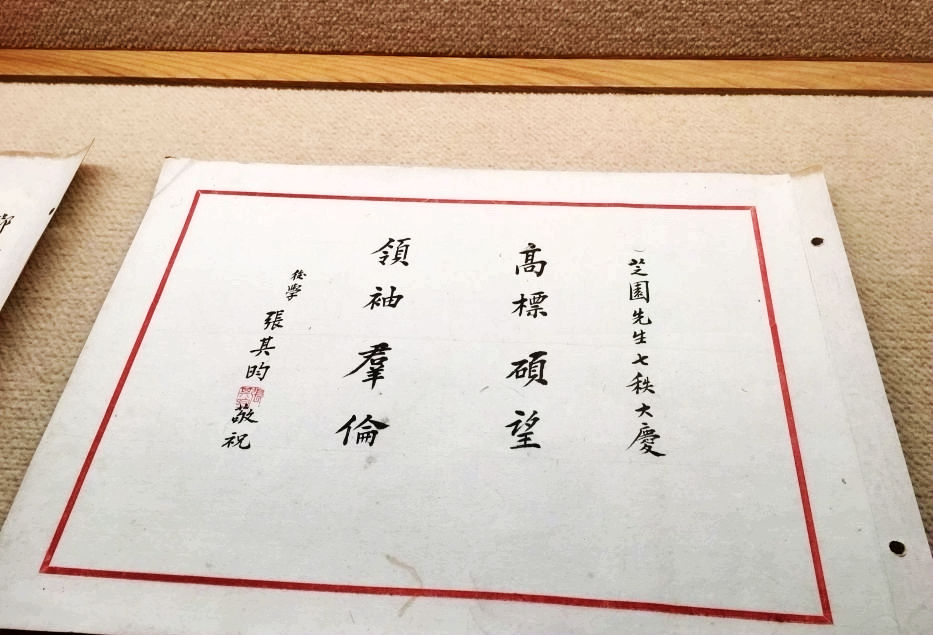 芝園先生七秩大慶
高標碩望
領袖羣倫
後學張其昀敬祝